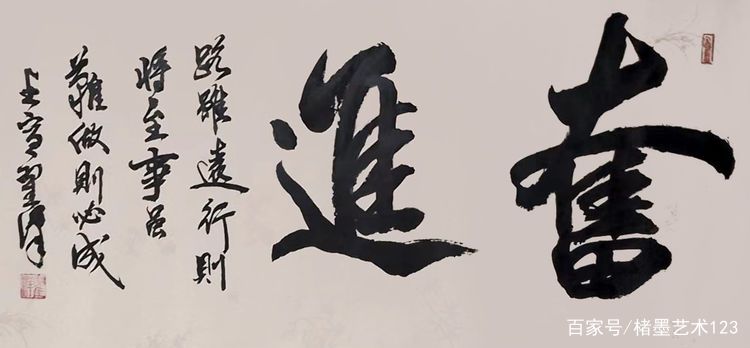 奮進
路雖遠行則
將至事虽
難做則必成
壬寅翟
百家号/楮墨艺术123